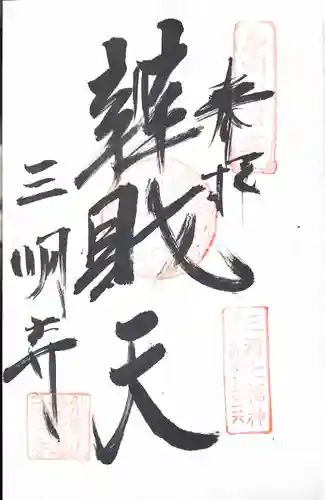 奉拝
辨財天
三明寺
三河七福神